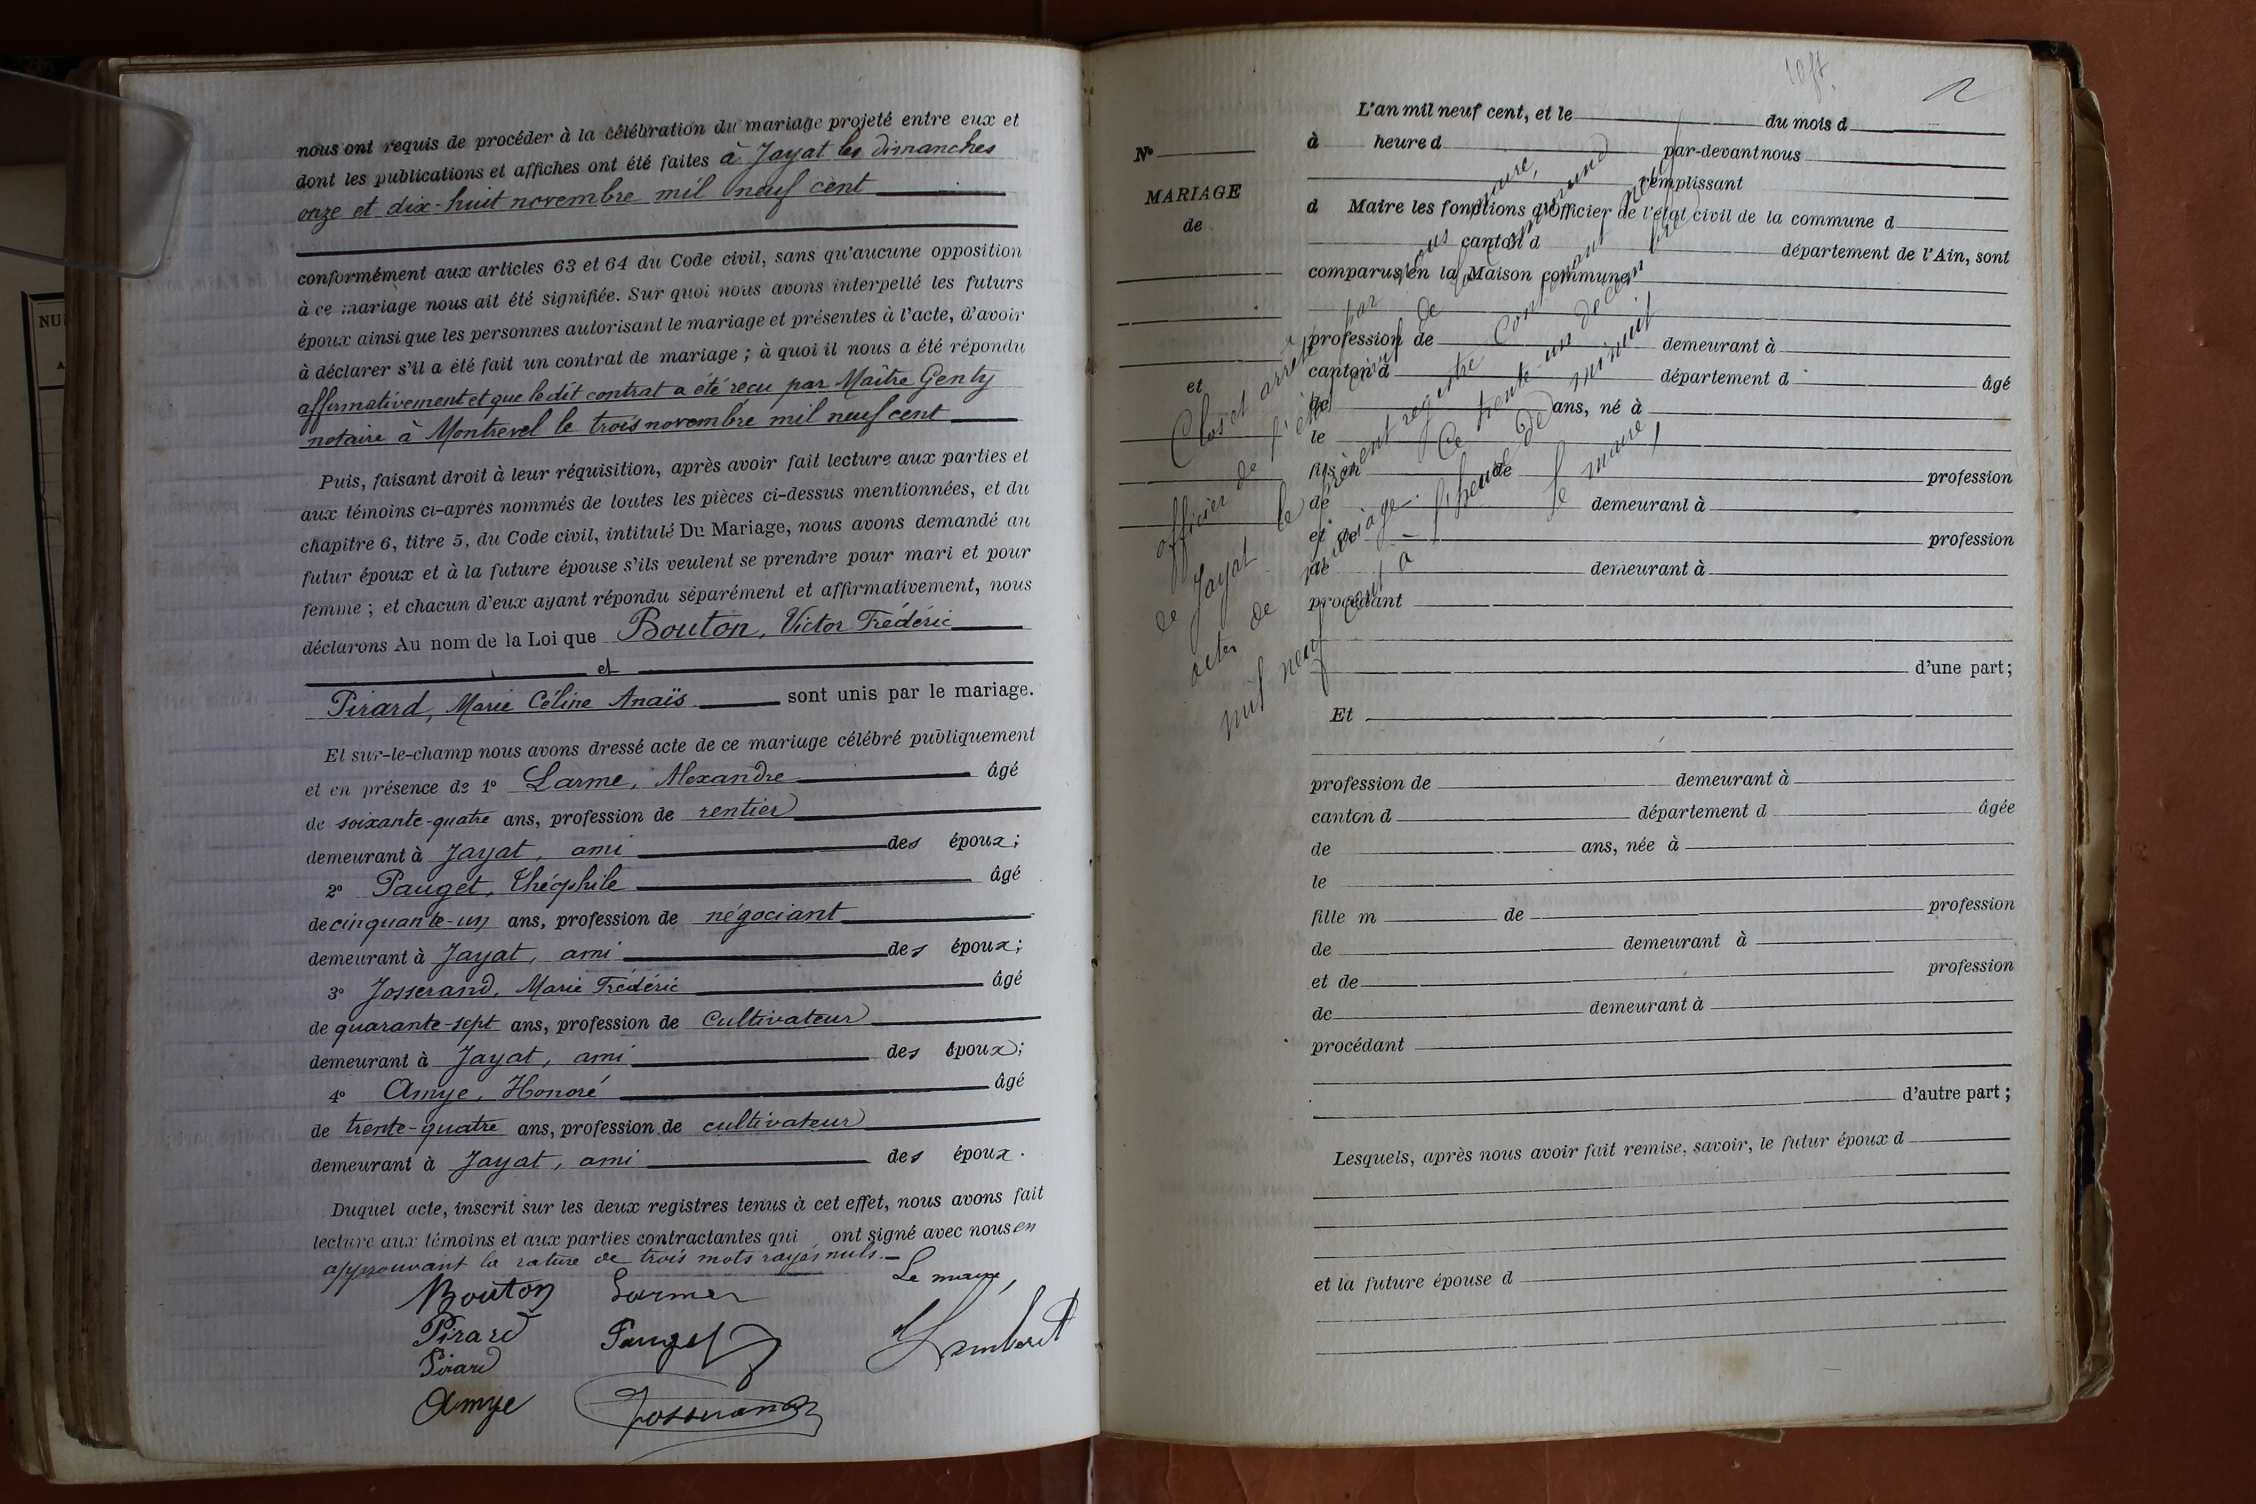 nous ont requis de procéder à la célébration du mariage projeté entre eux et
dont les publications et affiches ont été faites à Jayat les dimanches
onze et dix-huit novembre mil neuf cent
conformément aux articles 63 et 64 du Code civil, sans qu'aucune opposition
à ce mariage nous ait été signifiée. Sur quoi nous avons interpellé les futurs
époux ainsi que les personnes autorisant le mariage et présentes à l'acte, d'avoir
à déclarer s'il a été fait un contrat de mariage ; à quoi il nous a été répondu
affirmativement et que le dit contrat a été reçu par Maître Genty
notaire à Montrevel le trois novembre mil neuf cent
Puis, faisant droit à leur réquisition, après avoir fait lecture aux parties et
aux témoins ci-après nommés de toutes les pièces ci-dessus mentionnées, et du
chapitre 6, titre 5, du Code civil, intitulé Du Mariage, nous avons demandé au
futur époux et à la future épouse s'ils veulent se prendre pour mari et pour
femme ; et chacun d'eux ayant répondu séparément et affirmativement, nous
déclarons Au nom de la Loi que Bouton, Victor Frédéric
et
Pirard, Marie Céline Anaïs sont unis par le mariage.
Et sur-le-champ nous avons dressé acte de ce mariage célébré publiquement
et en présence de 1º Larme, Alexandre âgé
de soixante-quatre ans, profession de rentier
demeurant à Jayat, ami des époux ;
2º Pauget, Théophile âgé
de cinquante-un ans, profession de négociant
demeurant à Jayat, ami des époux ;
3º Josserand, Marie Frédéric âgé
de quarante-sept ans, profession de cultivateur
demeurant à Jayat, ami des époux ;
4º Amye, Honoré âgé
de trente-quatre ans, profession de cultivateur
demeurant à Jayat, ami des époux.
Duquel acte, inscrit sur les deux registres tenus à cet effet, nous avons fait
lecture aux témoins et aux parties contractantes qui ont signé avec nous en
approuvant la rature de trois mots rayés nuls.
Le maire,
Bouton Larme
Pirard Pauget Lambert
Pirard
Amye Josserand
2
L'an mil neuf cent, et le du mois d
Nº
à heure d par-devant nous
remplissant
MARIAGE
de
d Maire les fonctions d'Officier de l'état civil de la commune d
canton d département de l'Ain, sont
comparus en la Maison commune
profession de demeurant à
canton d département d âgé
et
de ans, né à
le
fils m de profession
de demeurant à
et de profession
de demeurant à
procédant
d'une part ;
Et
profession de demeurant à
canton d département d âgée
de ans, née à
le
fille m de profession
de demeurant à
et de profession
de demeurant à
procédant
d'autre part ;
Lesquels, après nous avoir fait remise, savoir, le futur époux d
et la future épouse d
Clos et arrêté par nous maire,
officier de l'état civil de la commune
de Jayat le présent registre contenant neuf
actes de mariage. Ce trente-un décembre
mil neuf cent à l'heure de minuit
Le maire,